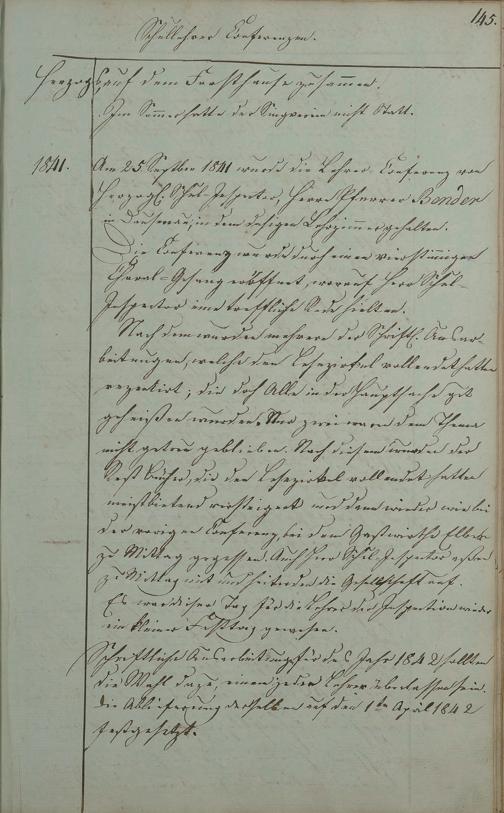 145.
Schullehrer Conferenzen.
Herzog auf dem Forsthause zusammen.
Im Sommer hatte der Singverein nicht Statt.
1841. Am 25 Septber 1841 wurde die Lehrer Conferenz von
Herzogl. Schul-Inspector, Herrn Pfarrer Bender
in Dausenau, in dem dasigen Lehrzimmer gehalten.
Die Conferenz wurde durch einen vierstimmigen
Choral-Gesang eröffnet, worauf Herr Schul-
Inspector eine treffliche Rede hielten.
Nach dem wurden mehrere der Schriftl. Ausar-
beitungen, welche den Lesezirkel vollendet hatten
rezensirt; die doch Alle in der Hauptsache gut
geheißen wurden. Nur zwei waren dem Thema
nicht getreu geblieben. Nach diesem wurden der
Lesebücher, die den Lesezirkel vollendet hatten
meistbietend versteigert und dann wieder wie bei
der vorigen Conferenz, bei dem Gastwirthe
zu Mittag gegessen. Auch Herr Schul-Inspector aßen
zu Mittag mit und heiterten die Gesellschaft auf.
Es war dieser Tag für die Lehrer der Inspection wieder
ein kleiner Festtag gewesen.
Schriftliche Ausarbeitung für das Jahr 1842 sollten
die Wahl dazu, einem jeden Lehrer überlassen sein.
Die Ablieferung derselben auf den 1ten April 1842
festgesetzt.